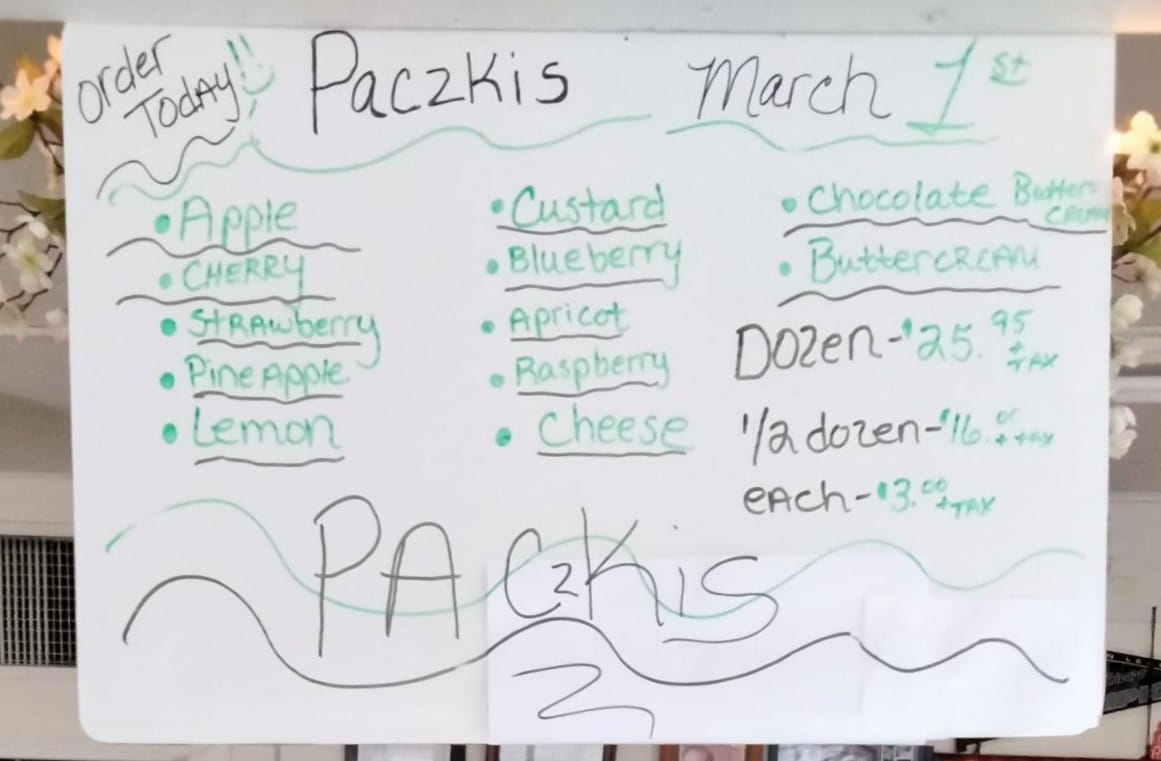 Order
TODAY!!
Paczkis
March 1st
• Apple
• CHERRY
• STRAWberry
• PineApple
• Lemon
• Custard
• Blueberry
• Apricot
• Raspberry
• Cheese
• Chocolate Butter-
CREAM
• ButtercREAM
DOZen - $25.95 + TAX
1/2 dozen - $16.00 + TAX
eACh - $3.00 + TAX
PACzKis